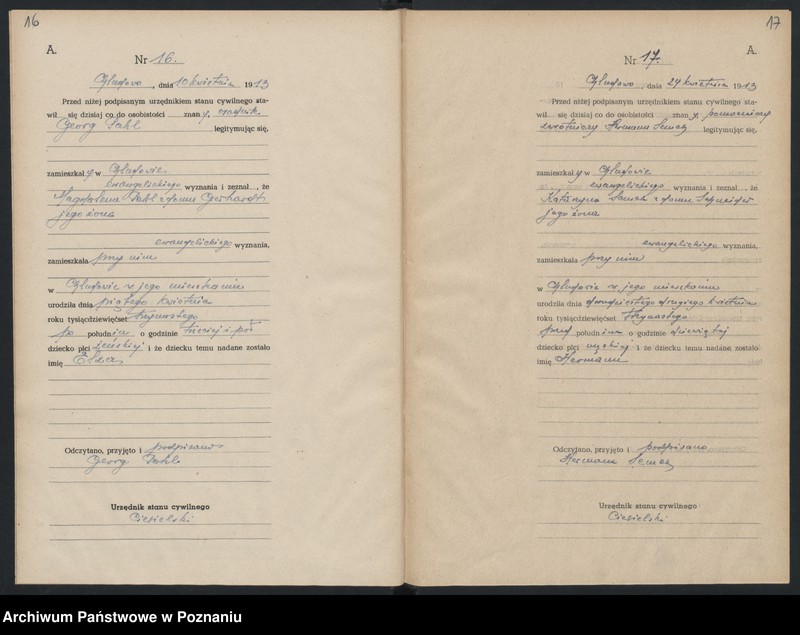 16
A.
Nr 16.
, dnia 10 kwietnia 1913
Przed niżej podpisanym urzędnikiem stanu cywilnego sta-
wił się dzisiaj co do osobistości znany,
Georg legitymując się,
zamieszkały w
ewangelickiego wyznania i zeznał, że
Magdalena z domu Gerhardt
jego żona
ewangelickiego wyznania,
zamieszkała przy nim
w w jego mieszkaniu
urodziła dnia piątego kwietnia
roku tysiącdziewięćset trzynastego
po południu o godzinie trzeciej i pół
dziecko płci żeńskiej i że dziecku temu nadane zostało
imię
Odczytano, przyjęto i podpisano
Georg
Urzędnik stanu cywilnego
Ciesielski
17
A.
Nr 17.
, dnia 24 kwietnia 1913
Przed niżej podpisanym urzędnikiem stanu cywilnego sta-
wił się dzisiaj co do osobistości znany, pomocniczy
zwrotniczy Hermann legitymując się,
zamieszkały w
ewangelickiego wyznania i zeznał, że
Katarzyna z domu Schneider
jego żona
ewangelickiego wyznania,
zamieszkała przy nim
w w jego mieszkaniu
urodziła dnia dwudziestego drugiego kwietnia
roku tysiącdziewięćset trzynastego
przed południem o godzinie dziewiątej
dziecko płci męskiej i że dziecku temu nadane zostało
imię Hermann
Odczytano, przyjęto i podpisano
Hermann
Urzędnik stanu cywilnego
Ciesielski
Archiwum Państwowe w Poznaniu